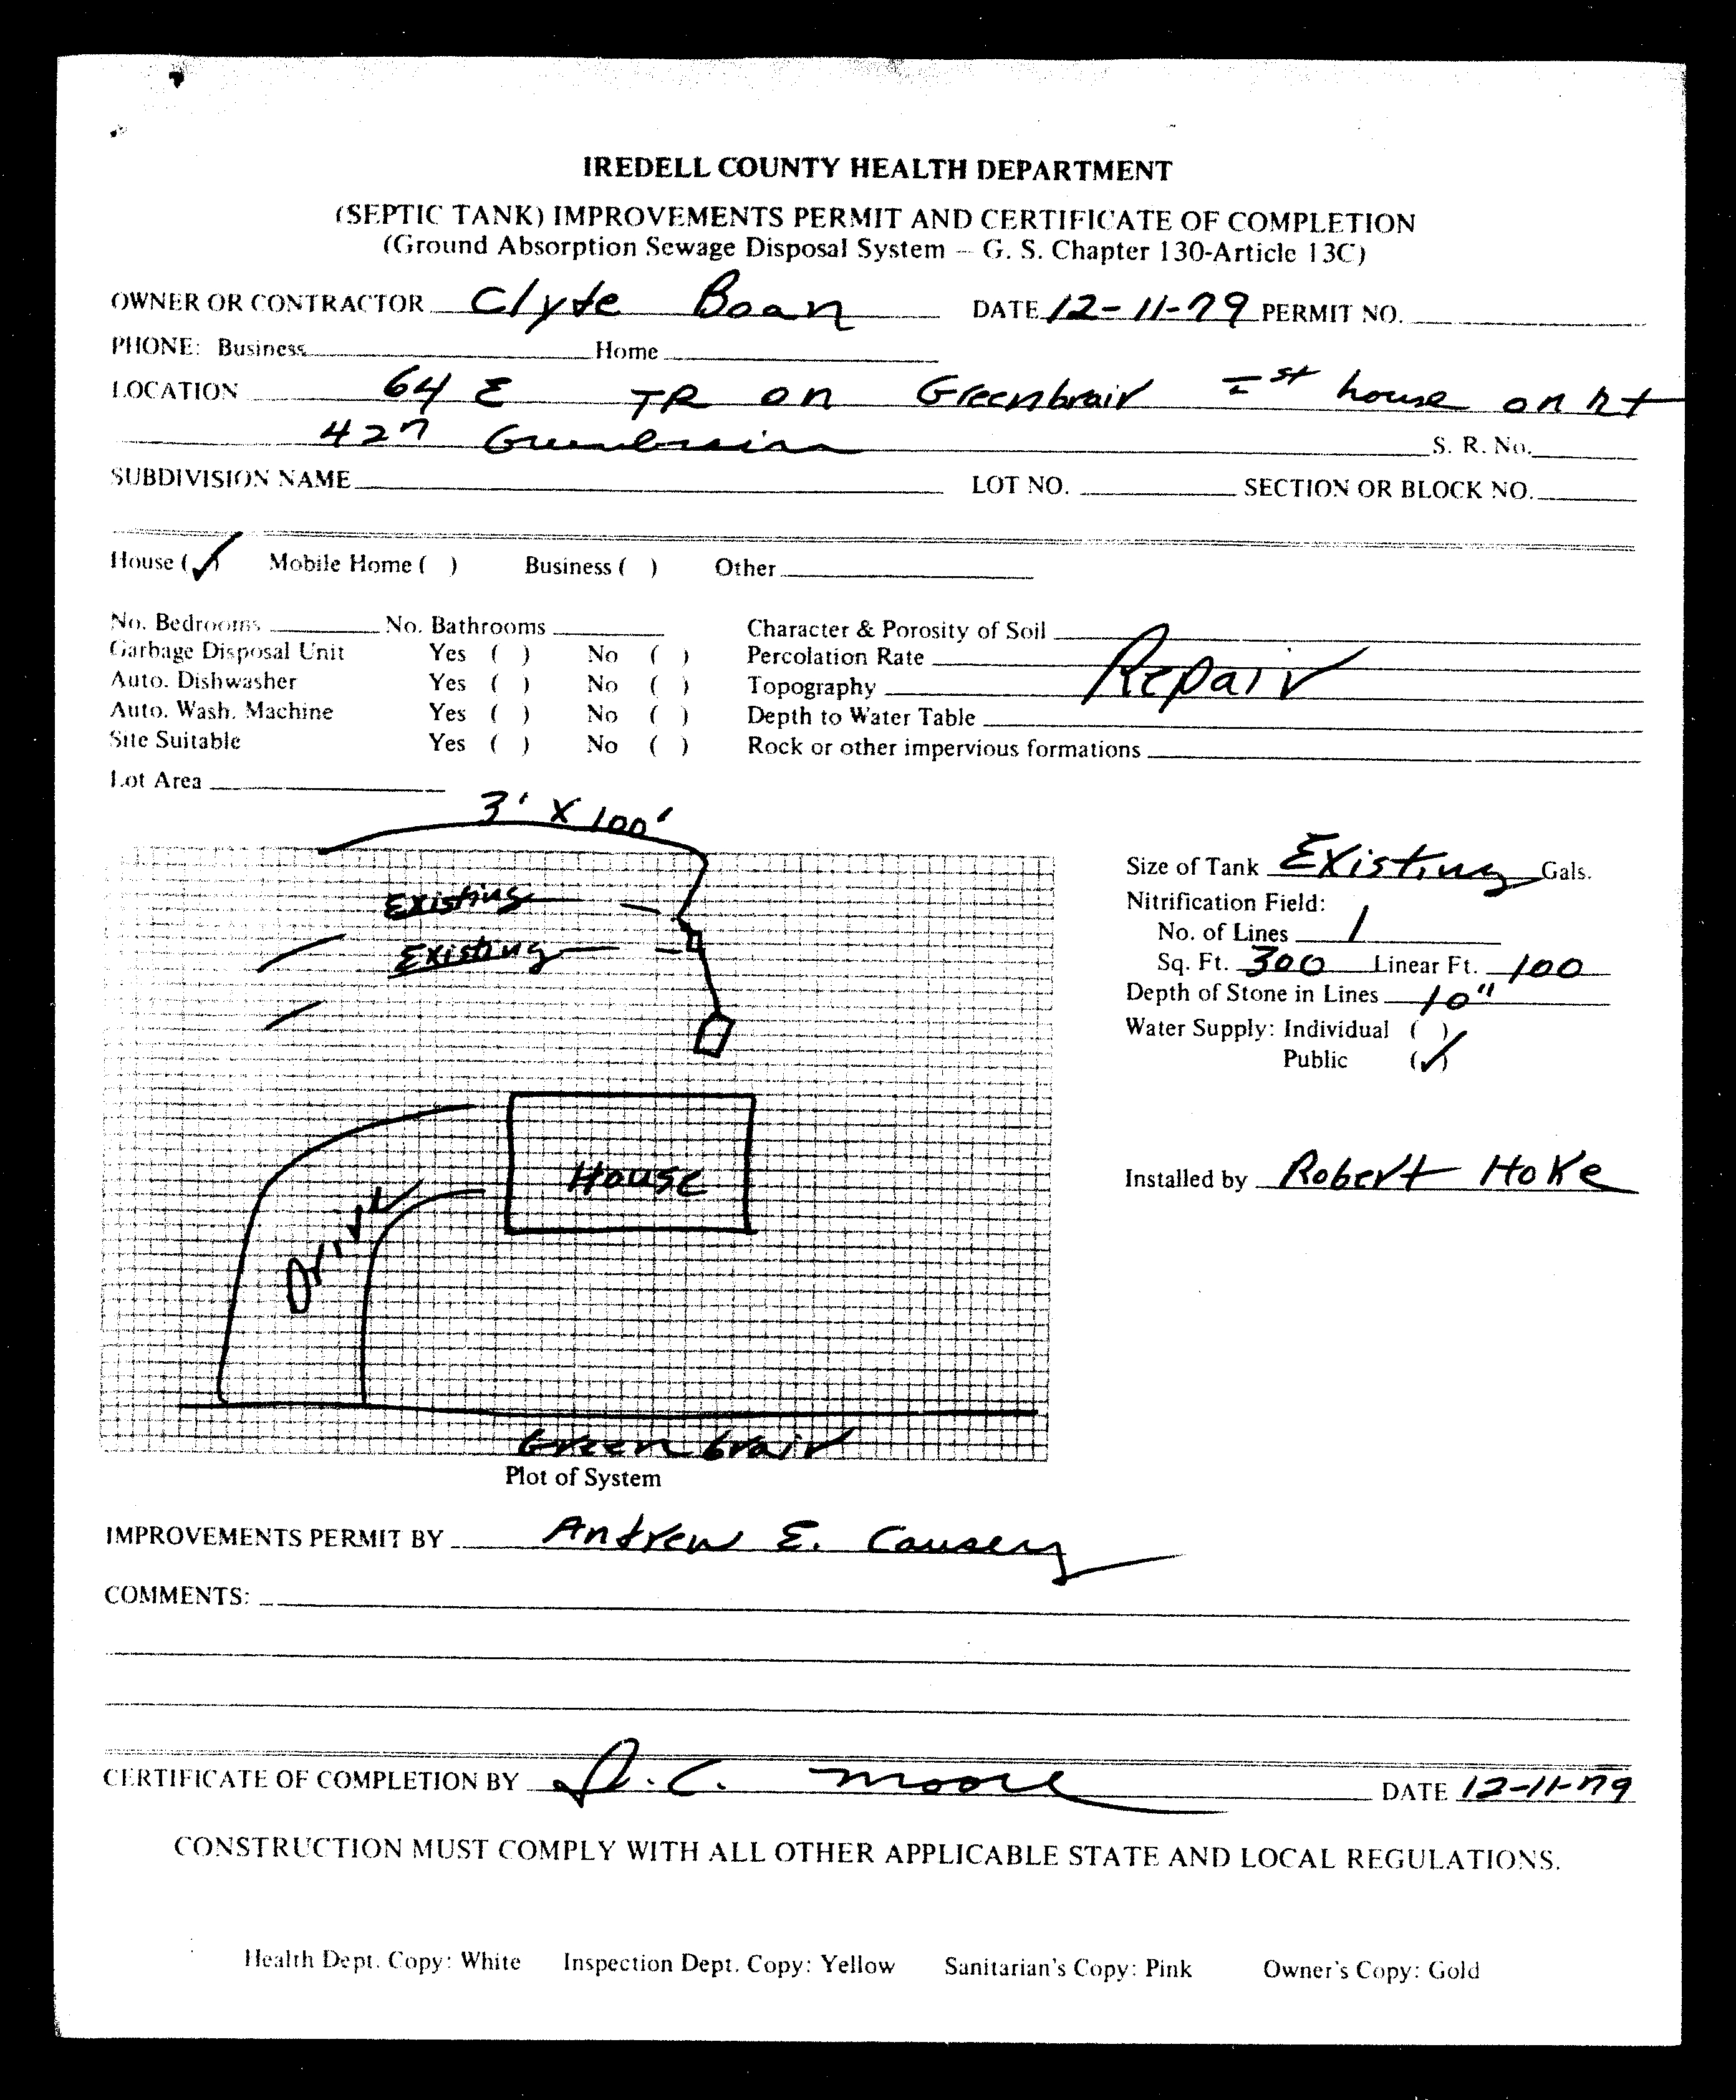 IREDELL COUNTY HEALTH DEPARTMENT
(SEPTIC TANK) IMPROVEMENTS PERMIT AND CERTIFICATE OF COMPLETION
(Ground Absorption Sewage Disposal System – G. S. Chapter 130-Article 13C)
OWNER OR CONTRACTOR Clyde Boan DATE 12-11-79 PERMIT NO.
PHONE: Business Home
LOCATION 64 E TR on Greenbrair 1st house on rt
427 Greenbrair S. R. No.
SUBDIVISION NAME LOT NO. SECTION OR BLOCK NO.
House (✓) Mobile Home ( ) Business ( ) Other
No. Bedrooms No. Bathrooms Character & Porosity of Soil
Garbage Disposal Unit Yes ( ) No ( ) Percolation Rate Repair
Auto. Dishwasher Yes ( ) No ( ) Topography
Auto. Wash. Machine Yes ( ) No ( ) Depth to Water Table
Site Suitable Yes ( ) No ( ) Rock or other impervious formations
Lot Area
3' X 100'
Size of Tank Existing Gals.
Existing
Nitrification Field:
No. of Lines 1
Existing
Sq. Ft. 300 Linear Ft. 100
Depth of Stone in Lines 10"
Water Supply: Individual ( )
Public (✓)
House
Installed by Robert Hoke
Drive
Greenbrair
Plot of System
IMPROVEMENTS PERMIT BY Andrew E. Causey
COMMENTS:
CERTIFICATE OF COMPLETION BY D.C. Moore DATE 12-11-79
CONSTRUCTION MUST COMPLY WITH ALL OTHER APPLICABLE STATE AND LOCAL REGULATIONS.
Health Dept. Copy: White Inspection Dept. Copy: Yellow Sanitarian's Copy: Pink Owner's Copy: Gold